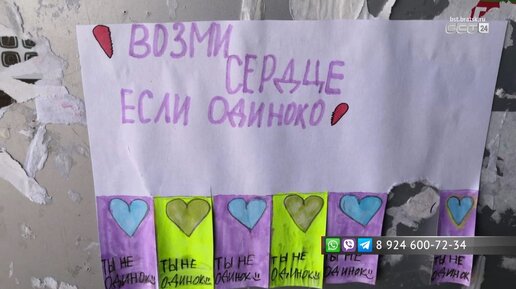 bst.bratsk.ru
БСТ 24
ВОЗМИ
СЕРДЦЕ
ЕСЛИ ОДИНОКО
ТЫ НЕ
ОДИНОК!!
ТЫ НЕ
ОДИНОК!!
ТЫ НЕ
ОДИНОК!!
ТЫ НЕ
ОДИНОК!!
ТЫ НЕ
ОДИНОК!!
ТЫ НЕ
ОДИНОК
8 924 600-72-34